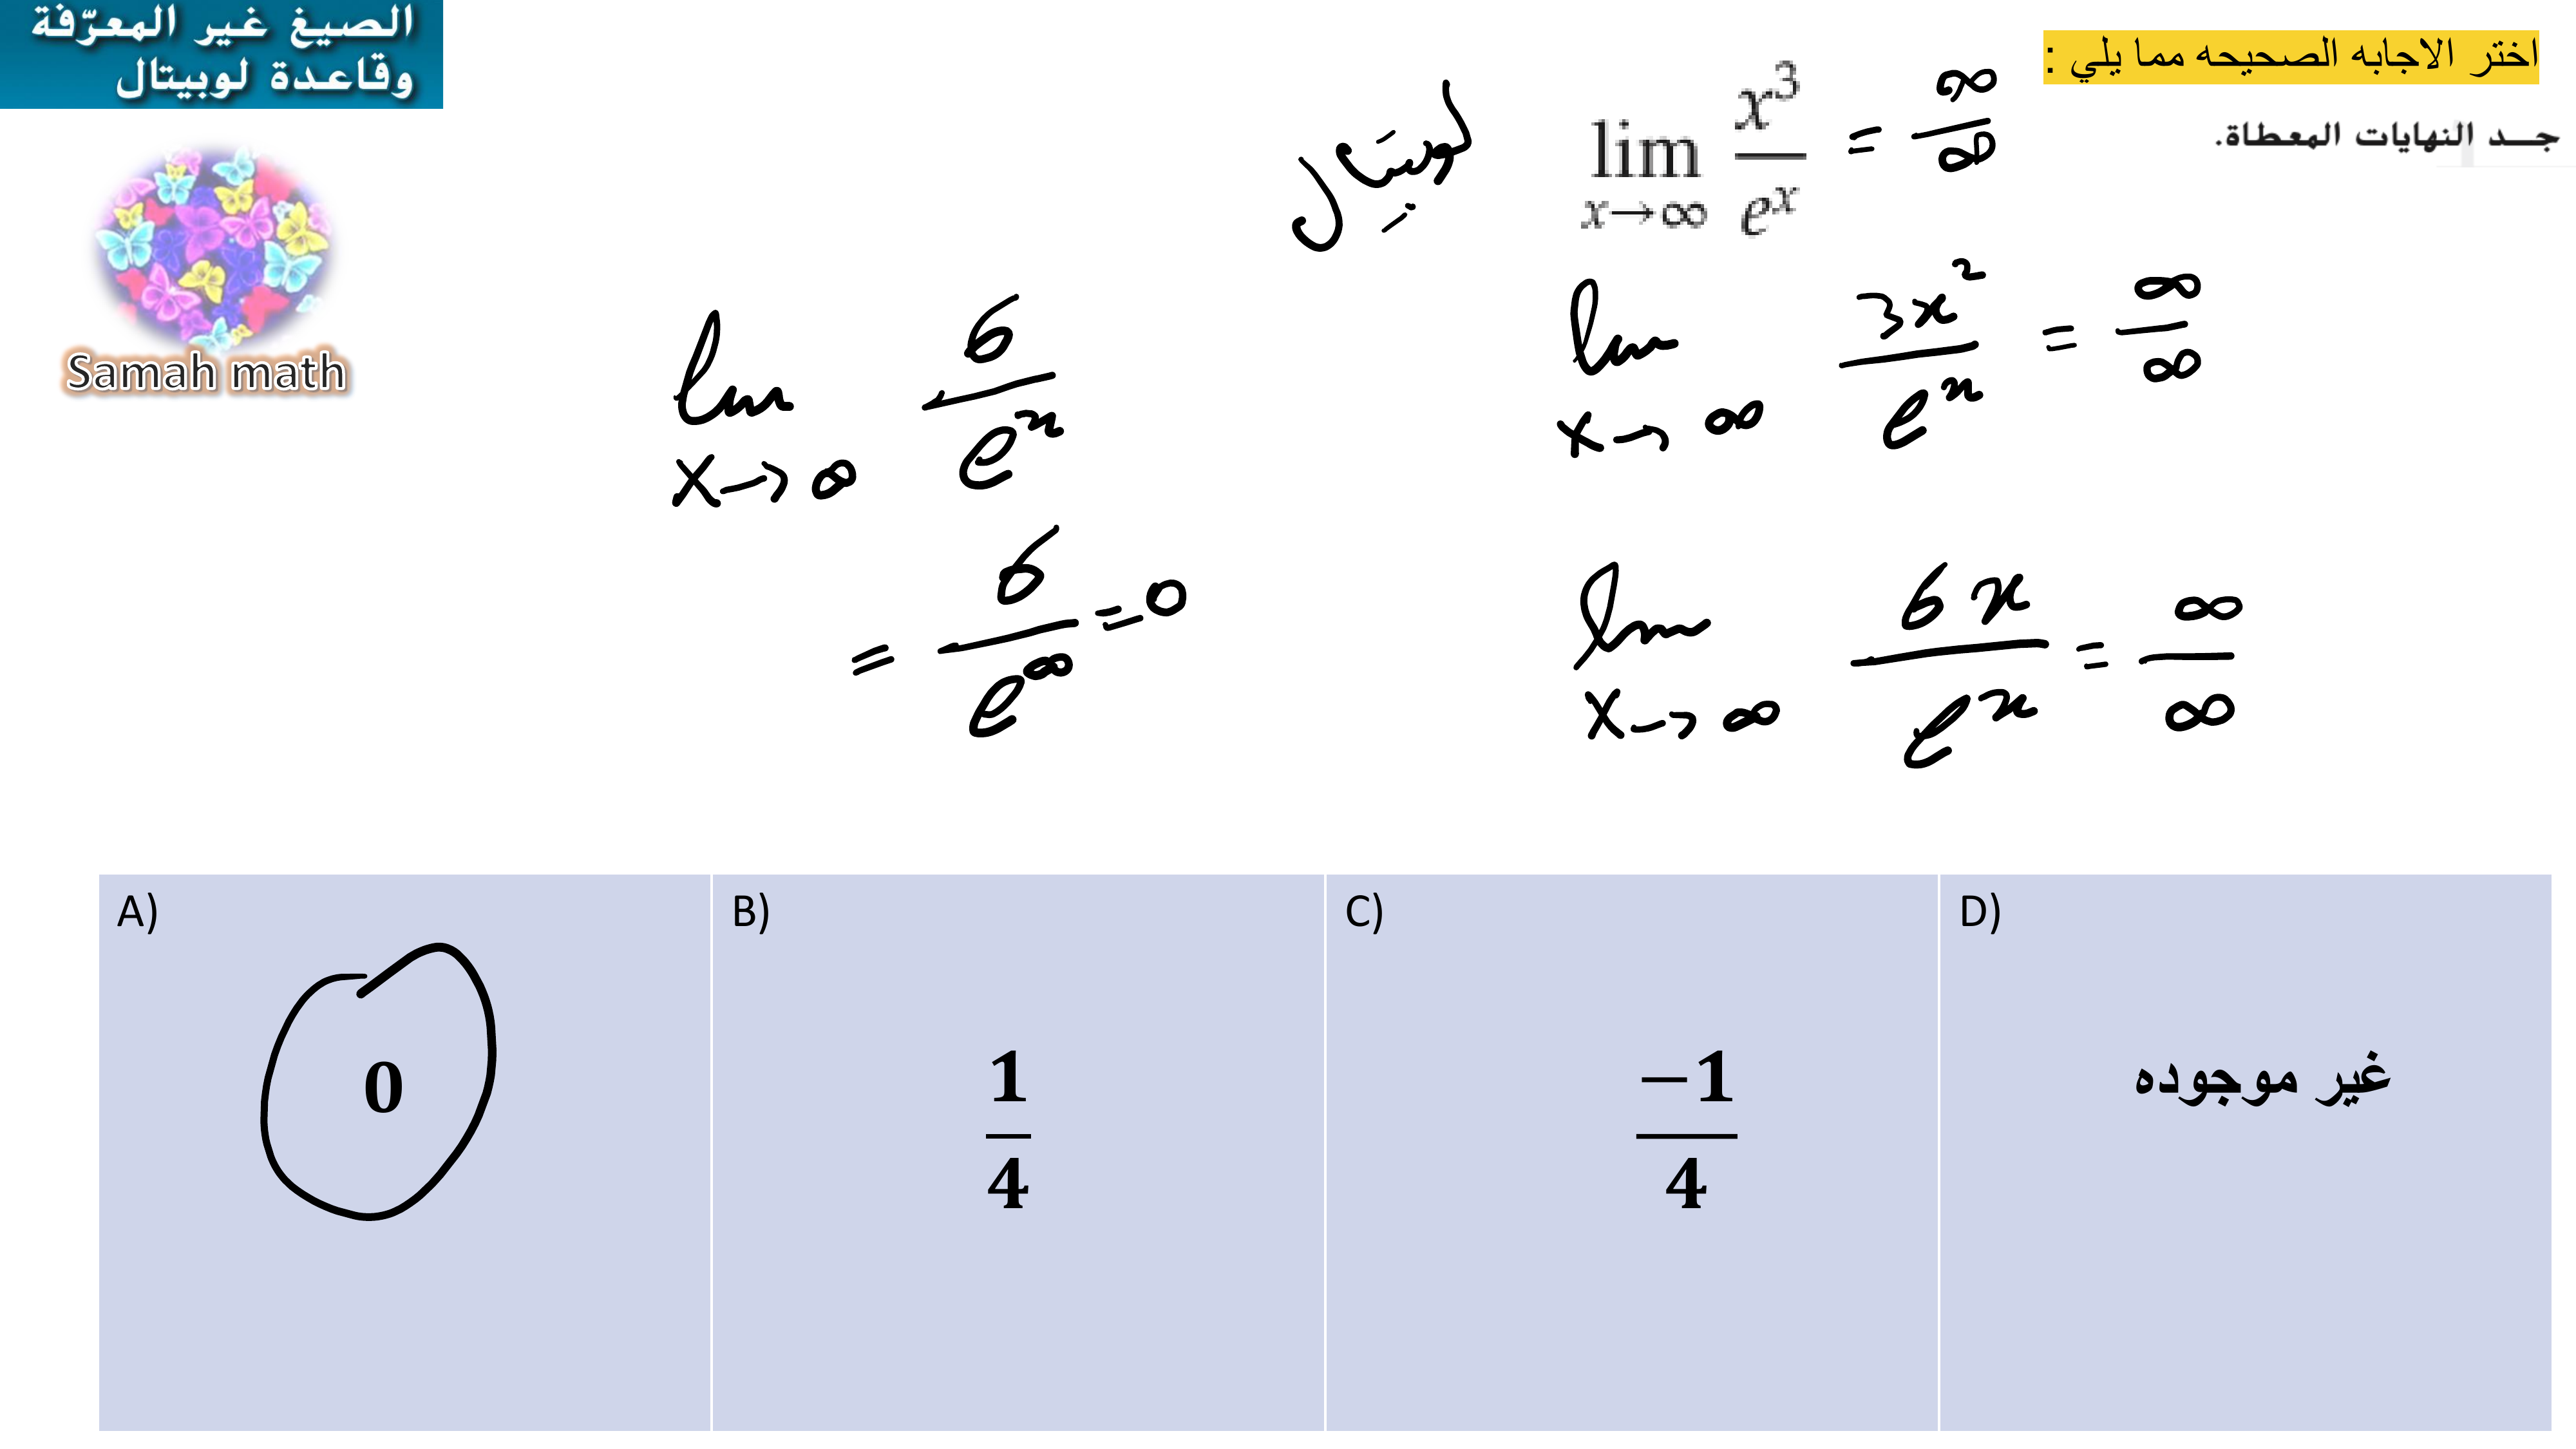 الصيغ غير المعرّفة
وقاعدة لوبيتال
Samah math
اختر الاجابه الصحيحه مما يلي :
جـد النهايات المعطاة.
lim x→∞ x³/eˣ = ∞/∞
لوبيتال
lim x→∞ 3x²/eˣ = ∞/∞
lim x→∞ 6x/eˣ = ∞/∞
lim x→∞ 6/eˣ
= 6/e^∞ = 0
A) 0
B) 1/4
C) −1/4
D) غير موجوده